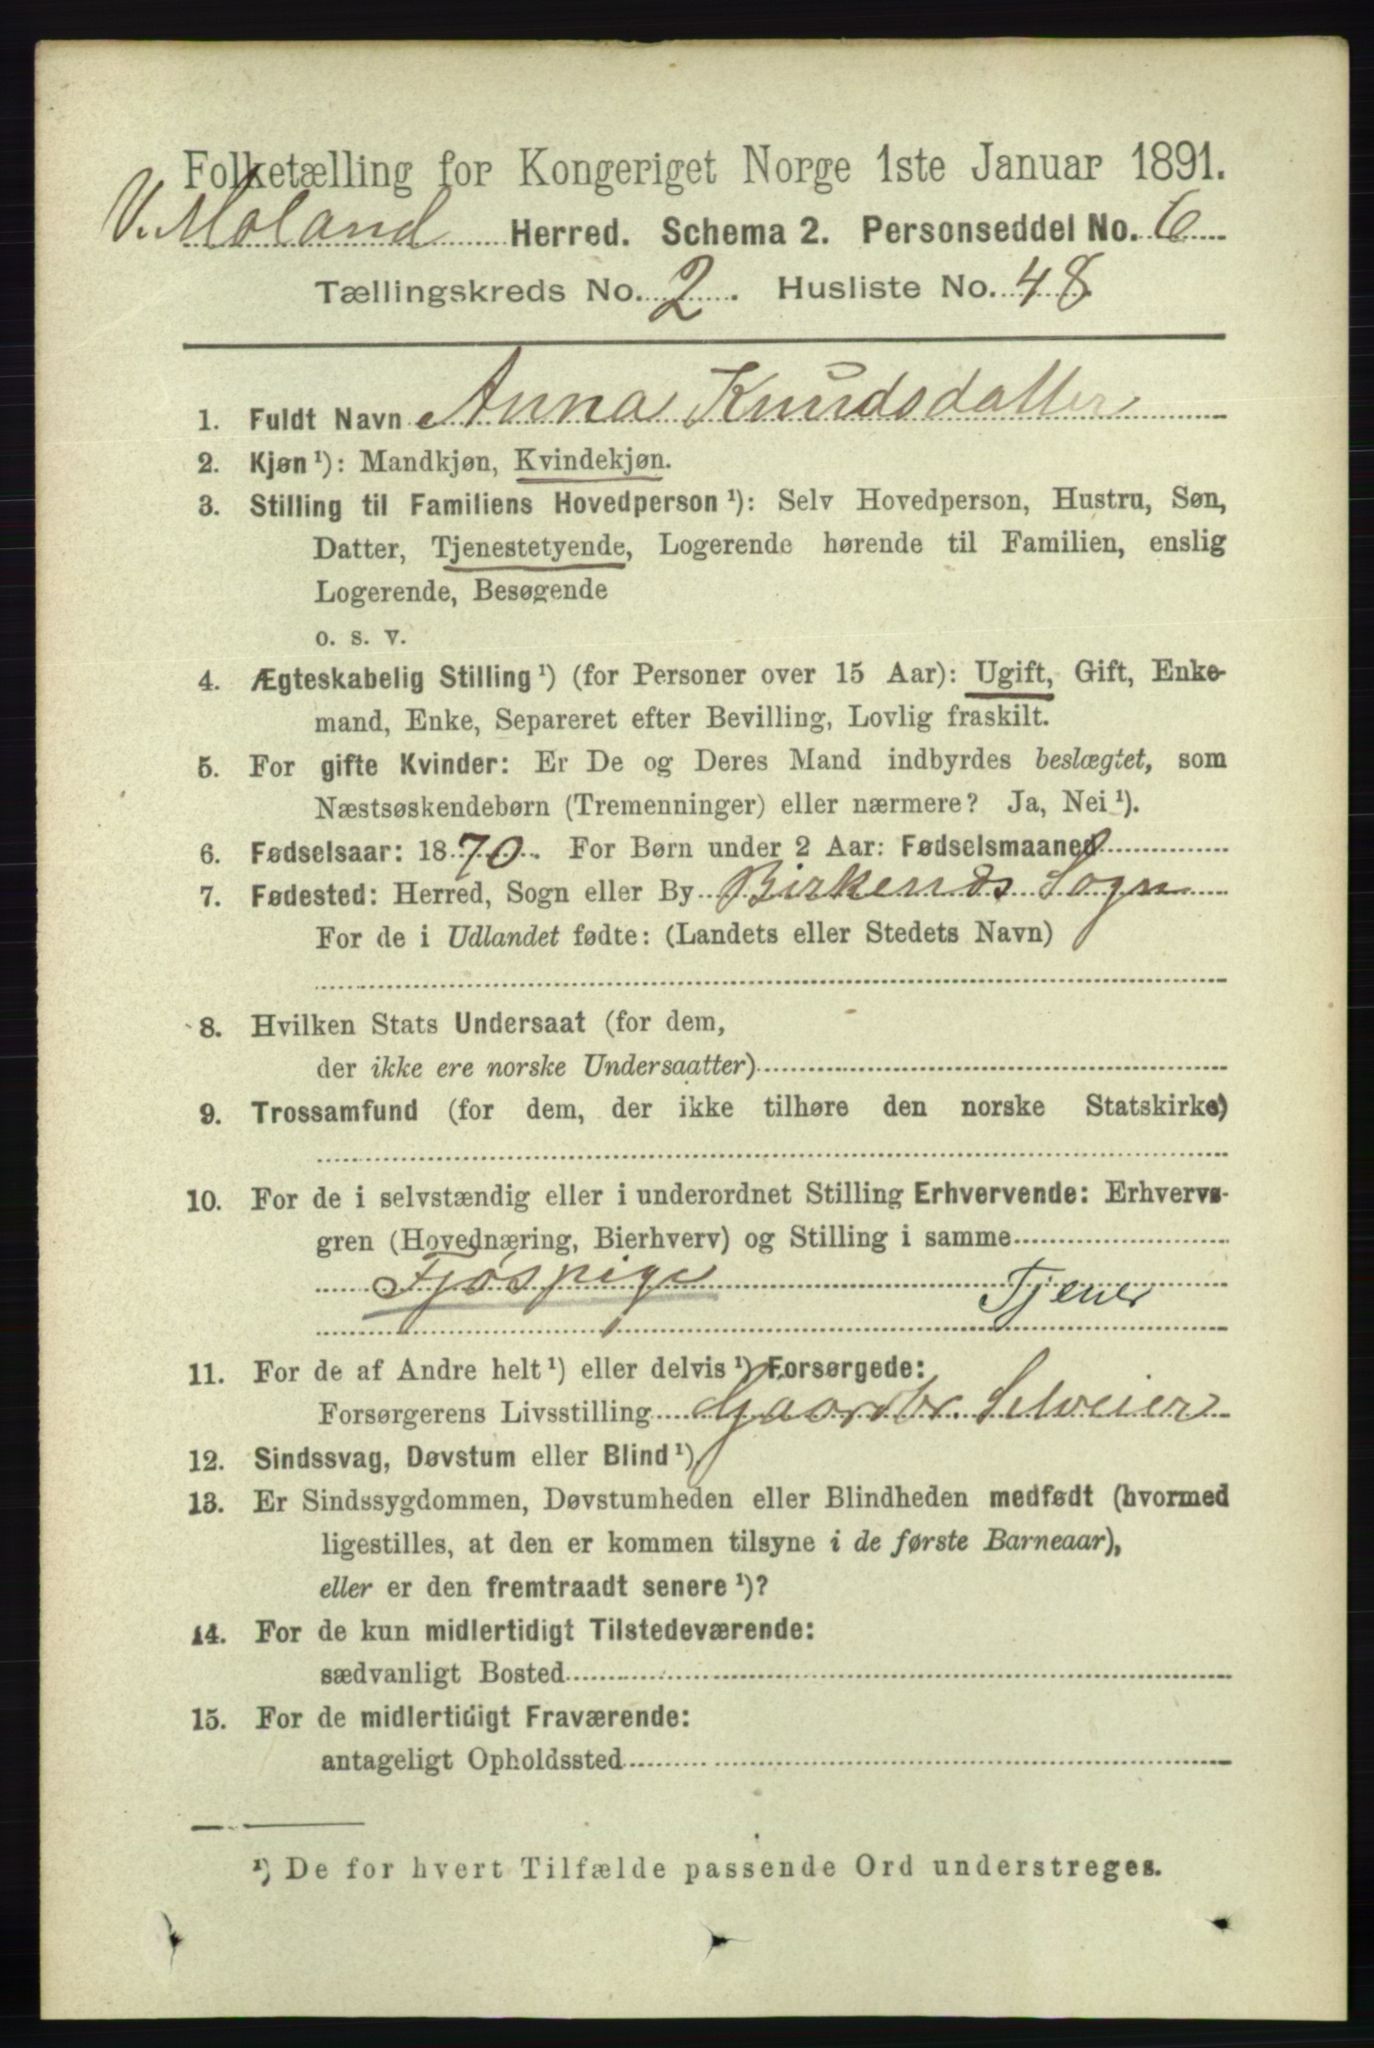 Folketælling for Kongeriget Norge 1ste Januar 1891.
V. Moland Herred. Schema 2. Personseddel No. 6
Tællingskreds No. 2. Husliste No. 48
1. Fuldt Navn Anna Knudsdatter
2. Kjøn ¹): Mandkjøn, Kvindekjøn.
3. Stilling til Familiens Hovedperson ¹): Selv Hovedperson, Hustru, Søn,
Datter, Tjenestetyende, Logerende hørende til Familien, enslig
Logerende, Besøgende
o. s. v.
4. Ægteskabelig Stilling ¹) (for Personer over 15 Aar): Ugift, Gift, Enke-
mand, Enke, Separeret efter Bevilling, Lovlig fraskilt.
5. For gifte Kvinder: Er De og Deres Mand indbyrdes beslægtet, som
Næstsøskendebørn (Tremenninger) eller nærmere? Ja, Nei ¹).
6. Fødselsaar: 1870. For Børn under 2 Aar: Fødselsmaaned
7. Fødested: Herred, Sogn eller By Birkenæs Sogn
For de i Udlandet fødte: (Landets eller Stedets Navn)
8. Hvilken Stats Undersaat (for dem,
der ikke ere norske Undersaatter)
9. Trossamfund (for dem, der ikke tilhøre den norske Statskirke)
10. For de i selvstændig eller i underordnet Stilling Erhvervende: Erhvervs-
gren (Hovednæring, Bierhverv) og Stilling i samme
Fjøspige Tjener
11. For de af Andre helt ¹) eller delvis ¹) Forsørgede:
Forsørgerens Livsstilling Gaardbr. Selveier
12. Sindssvag, Døvstum eller Blind ¹)
13. Er Sindssygdommen, Døvstumheden eller Blindheden medfødt (hvormed
ligestilles, at den er kommen tilsyne i de første Barneaar),
eller er den fremtraadt senere ¹)?
14. For de kun midlertidigt Tilstedeværende:
sædvanligt Bosted
15. For de midlertidigt Fraværende:
antageligt Opholdssted
¹) De for hvert Tilfælde passende Ord understreges.